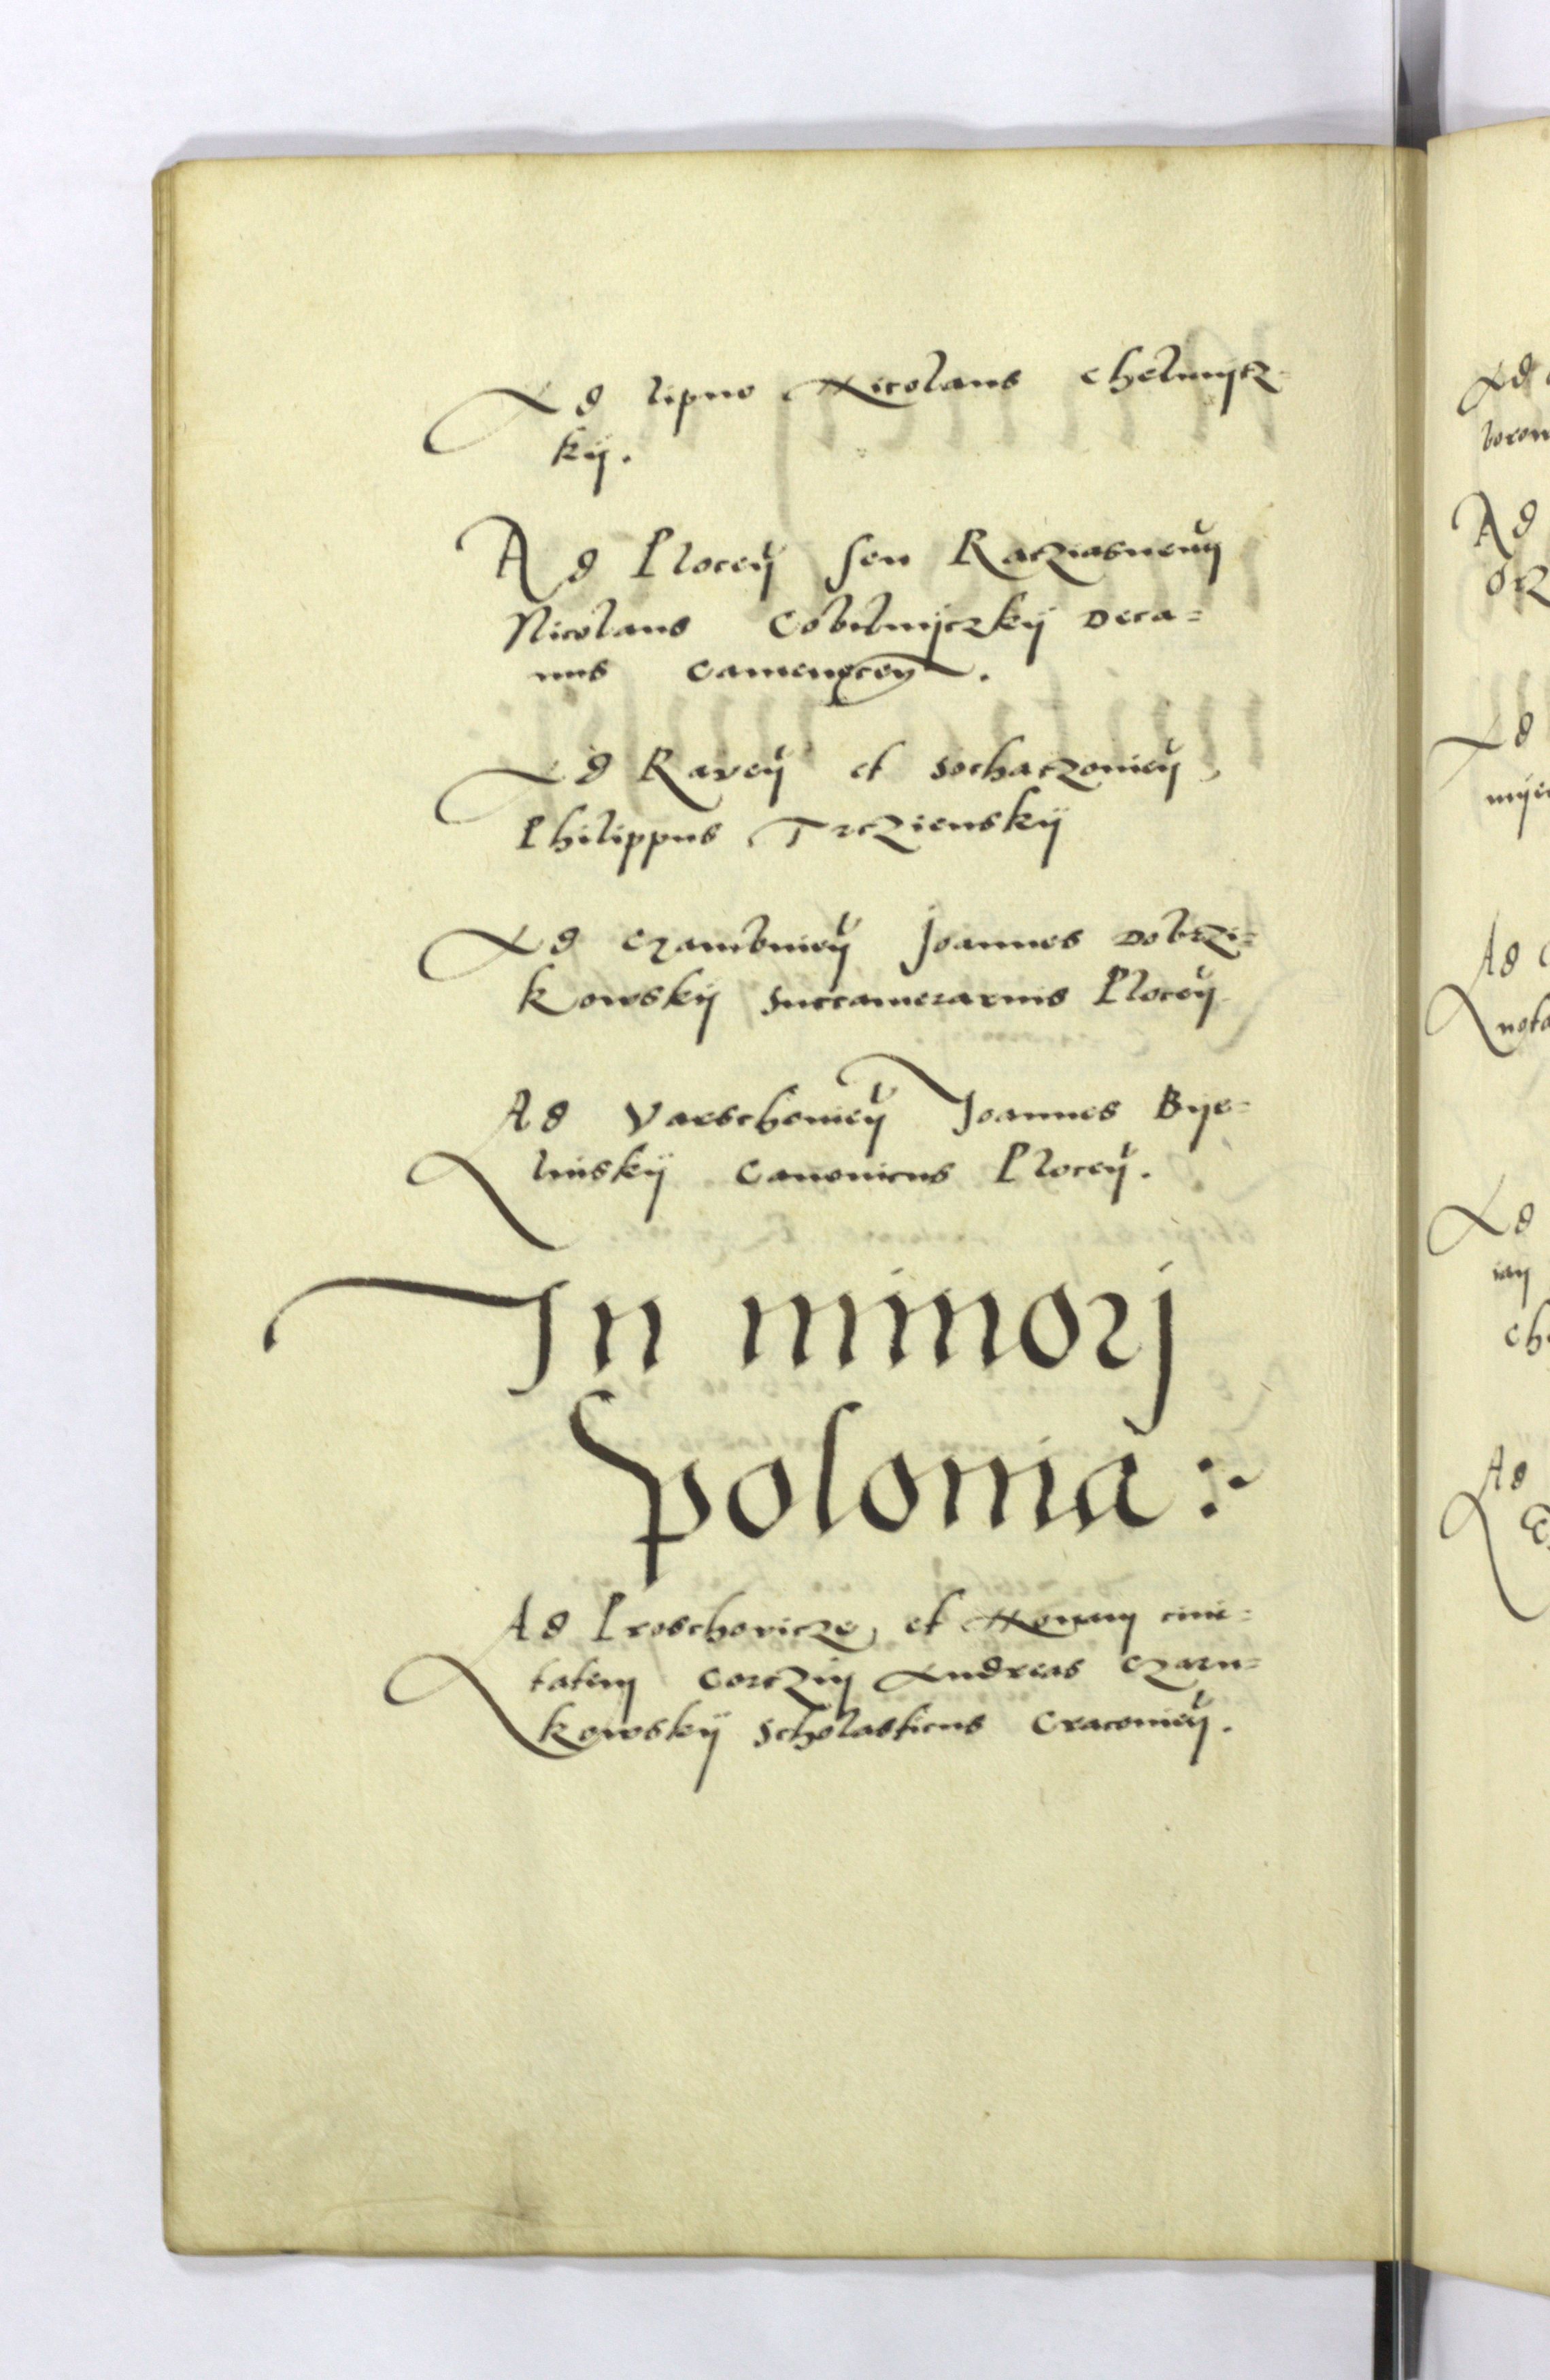 Ad lipno Nicolaus Chelmytz-
kÿ.
Ad Plocen̄ seu Ratziasnen̄
Nicolaus Cobilnyczkÿ Deca=
nus Camenecen̄.
Ad Raven̄ et Sochatzonien̄,
Philippus Trczienskÿ
Ad Czambnien̄ Joannes Dobrzi=
kowskÿ Succamerarius Plocen̄
Ad Varschonien̄ Joannes Bye=
linskÿ Canonicus Plocen̄.
In minorj
Polonia :~
Ad Proschovicze, et Novam ciui=
tatem Corczin Andreas Czarn=
kowskÿ Scholasticus Craconien̄.
Ad
Ad
Ad
Ad
nota
Ad
Ad